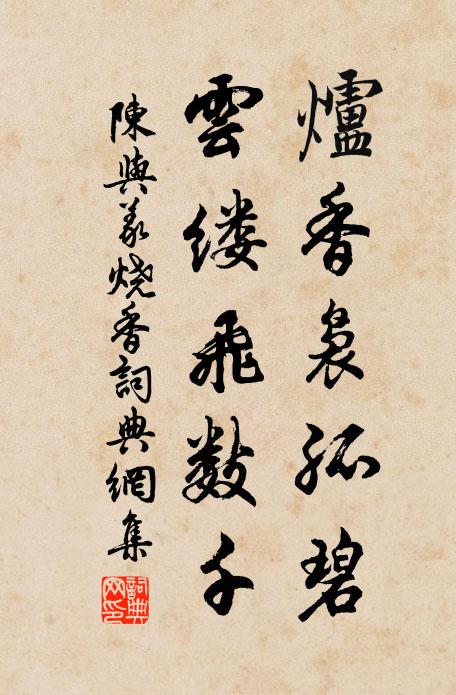 爐香裊孤碧
雲縷飛數千
陳與義燒香詞典網集
詞典網印